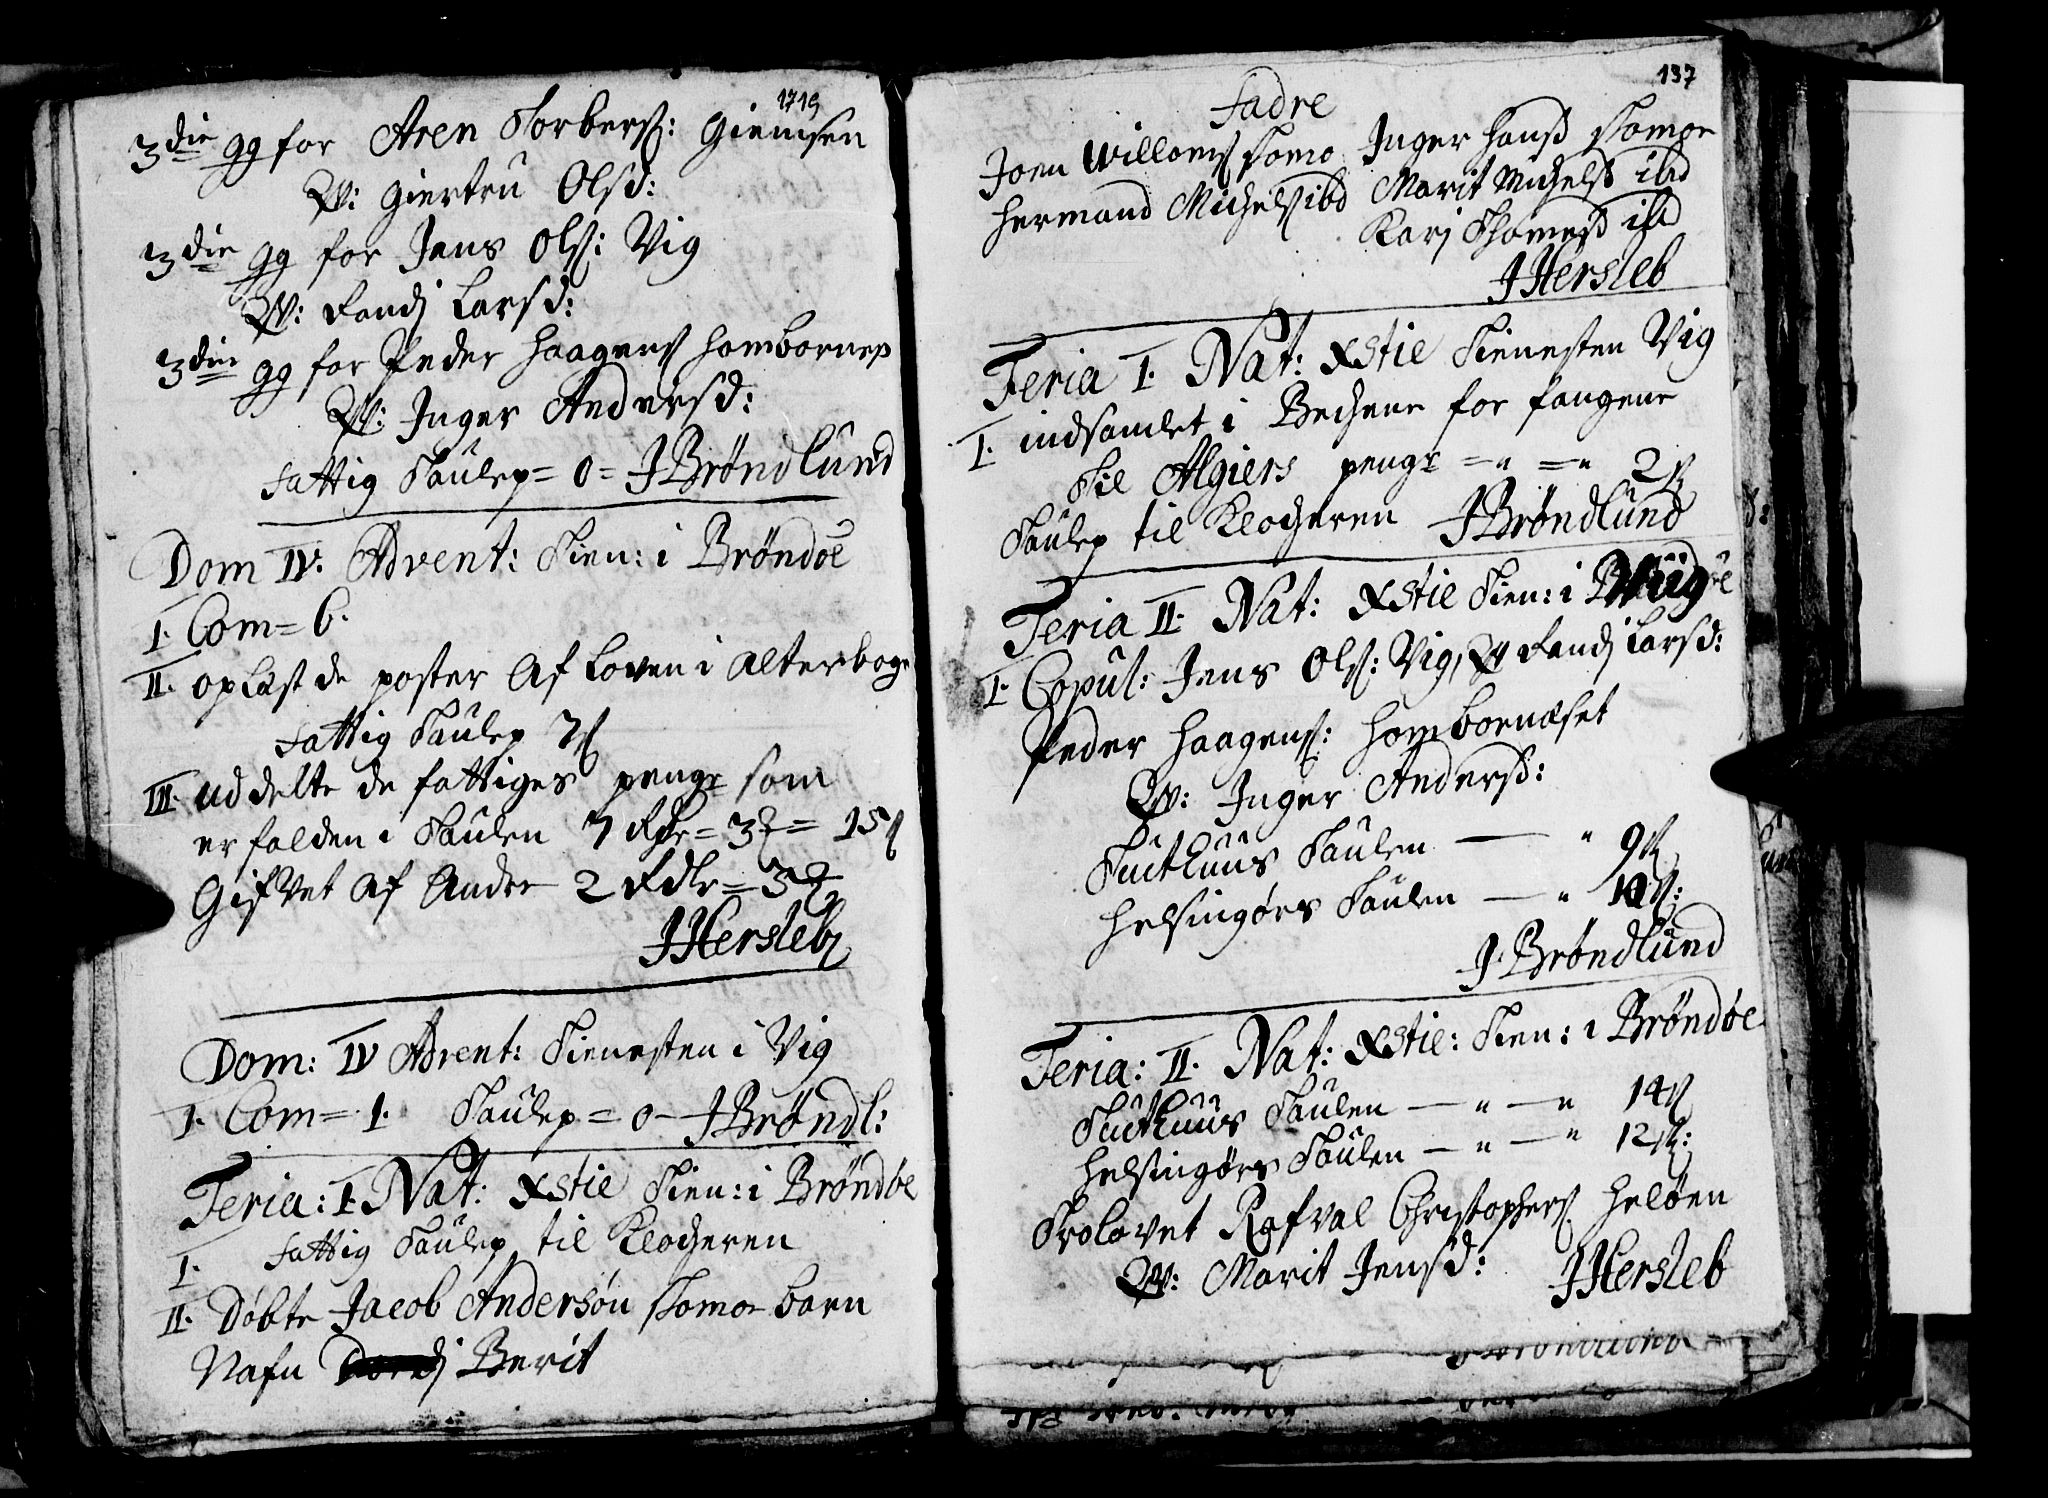 1719
3die gg for Aren Torbers: Giemsen
Qv: Giertru Olsd:
3die gg for Jens Ols: Vig
Qv: Randj Larsd:
3die gg for Peder Haagens Hombornes
Qv: Inger Andersd:
Fattig Taulep = 0 = JBrøndlund
Dom IV. Advent: Tien: i Brøndøe
I. Com = 6.
II. oplæst de poster af Loven i Alterboge
Fattig Taulep 7s
III. Uddelte de fattiges penge som
er falden i Taulen 7 Rdlr = 3 = 15s
Gifvet af Andre 2 Rdlr = 3
JHersleb
Dom: IV Advent: Tienesten i Vig
I. Com = 1. Taulep = 0 – JBrøndl:
Feria: I. Nat: Xstie Tien: i Brøndøe
I. Fattig Taulep til Klocheren
II. Døbte Jacob Andersøn Tomøe barn
Nafn Berit
137
Fadre
Joen Willoms Tomø Inger Hansd Tomøe
Hermand Michels ibd Marit Michelsd ibd
Karj Thomesd ibd
JHersleb
Feria I. Nat: Xstie Tienesten Vig
I. indsamlet i Bechene for fangene
til Algiers penge = " = " 2s
Taulep til Klocheren JBrøndlund
Feria II. Nat: Xstie Tien: i Viig
I. Copul: Jens Ols: Vig, Qv Randj Larsd:
Peder Haagens: Hombornæset
Qv: Inger Andersd:
Tucthuus Taulen — " 9s
Helsingørs Taulen — " 10s:
J. Brøndlund
Feria: II. Nat: Xstie: Tien: i Brøndøe
Tucthuus Taulen — " — " 14s
Helsingørs Taulen — " — " 12s:
Trolovet Rafval Christophers Heløen
Qv: Marit Jensd: JHersleb